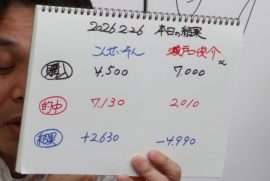 2026.2.26 本日の結果
こんせいそん 瀬戸俊介
購入 4,500 7,000
的中 7,130 2,010
結果 +2,630 -4,990